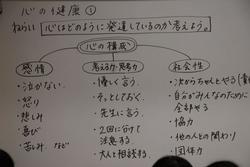 心の健康①
ねらい 心はどのように発達しているのか考えよう。
心の構成
感情
・泣かない
・怒り
・悲しみ
・喜び
・苦しみ など
考える力・思考力
・優しく言う
・そっとしておく
・先生に言う
・2回に分けて
注意する
・大人と相談する
社会性
・次からちゃんとやる
・自分がみんなのために
全部やる
・協力
・他の人との関わり
・団体力